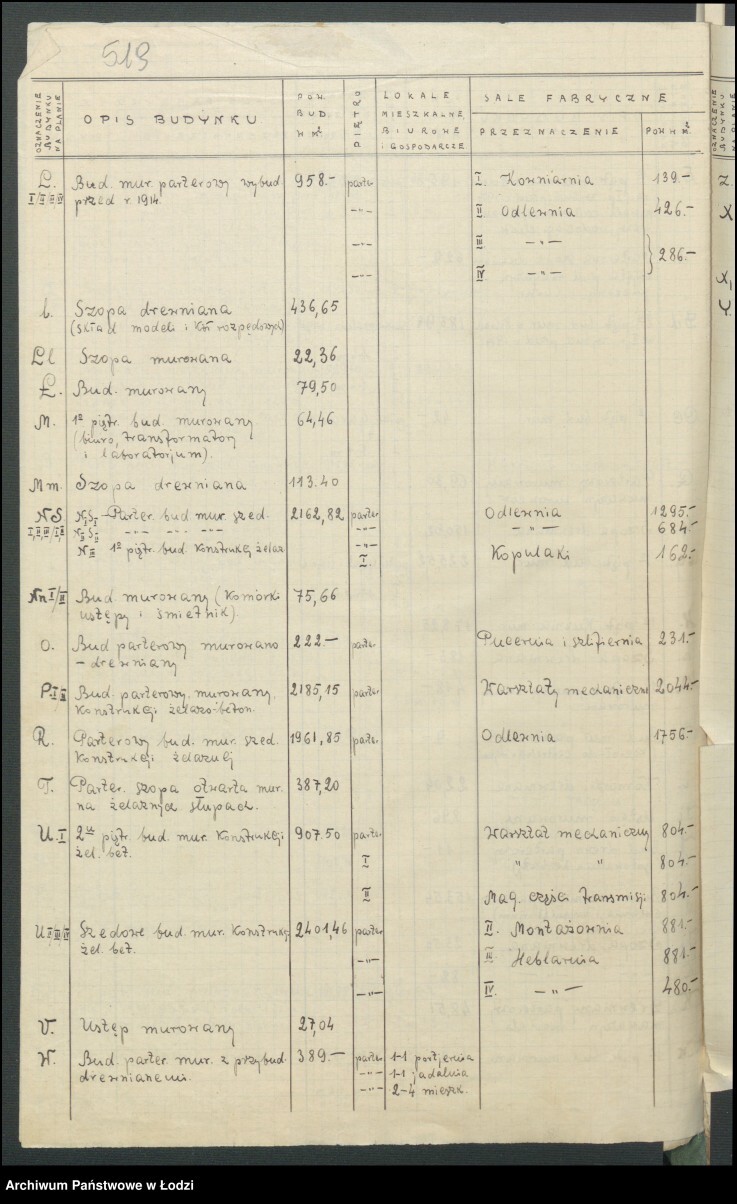 513
OZNACZENIE BUDYNKU NA PLANIE
OPIS BUDYNKU
POW. BUD. W M²
PIĘTRO
LOKALE MIESZKALNE, BIUROWE i GOSPODARCZE
SALE FABRYCZNE
PRZEZNACZENIE
POW. W M²
OZNACZENIE BUDYNKU NA PLANIE
L. Bud. mur. parterowy wybud. 958.- parter I Kowniarnia 139.-
I/II/III/IV przed r. 1914. -"- II Odlewnia 426.-
-"- III -"-
286.-
-"- IV -"-
l. Szopa drewniana 436,65
(skład modeli i kół rozpędowych)
Ll Szopa murowana 22,36
Ł. Bud. murowany 79,50
M. 1o piętr. bud. murowany 64,46
(biuro, transformatory
i laboratorjum).
Mm. Szopa drewniana 113.40
NS NISI - Parter. bud. mur. szed. 2162,82 parter Odlewnia 1295.-
I,II,III/I,II NIISII -"- -"- -"- -"- -"- 684.-
NIII 1o piętr. bud. konstrukcj. żelaz. -"-
I. Kopulaki 162.-
Nn I/II Bud. murowany (komórki 75,66
ustępy i śmietnik).
O. Bud parterowy murowano 222.- parter Pucernia i szlifiernia 231.-
- drewniany
P I II Bud. parterowy, murowany, 2185,15 parter Warsztaty mechaniczne 2044.-
konstrukcji żelazo-beton.
R. Parterowy bud. mur. szed. 1961,85 parter Odlewnia 1756.-
konstrukcji żelaznej
T. Parter. szopa otwarta mur. 387,20
na żelaznych słupach.
U.I 2u piętr. bud. mur. konstrukcji 907.50 parter Warsztat mechaniczny 804.-
żel. bet. I " " 804.-
II Mag. części transmisji 804.-
U II,III,IV Szedowe bud. mur. konstrukcj. 2401,46 parter II. Montażownia 881.-
żel. bet. -"- III Heblarnia 881.-
-"- IV. -"- 480.-
V. Ustęp murowany 27,04
W. Bud. parter. mur. z przybud. 389.- parter 1-1 portjernia
drewnianemi. -"- 1-1 jadalnia
-"- 2-4 mieszk.
Z
X
X1
Y.
Archiwum Państwowe w Łodzi